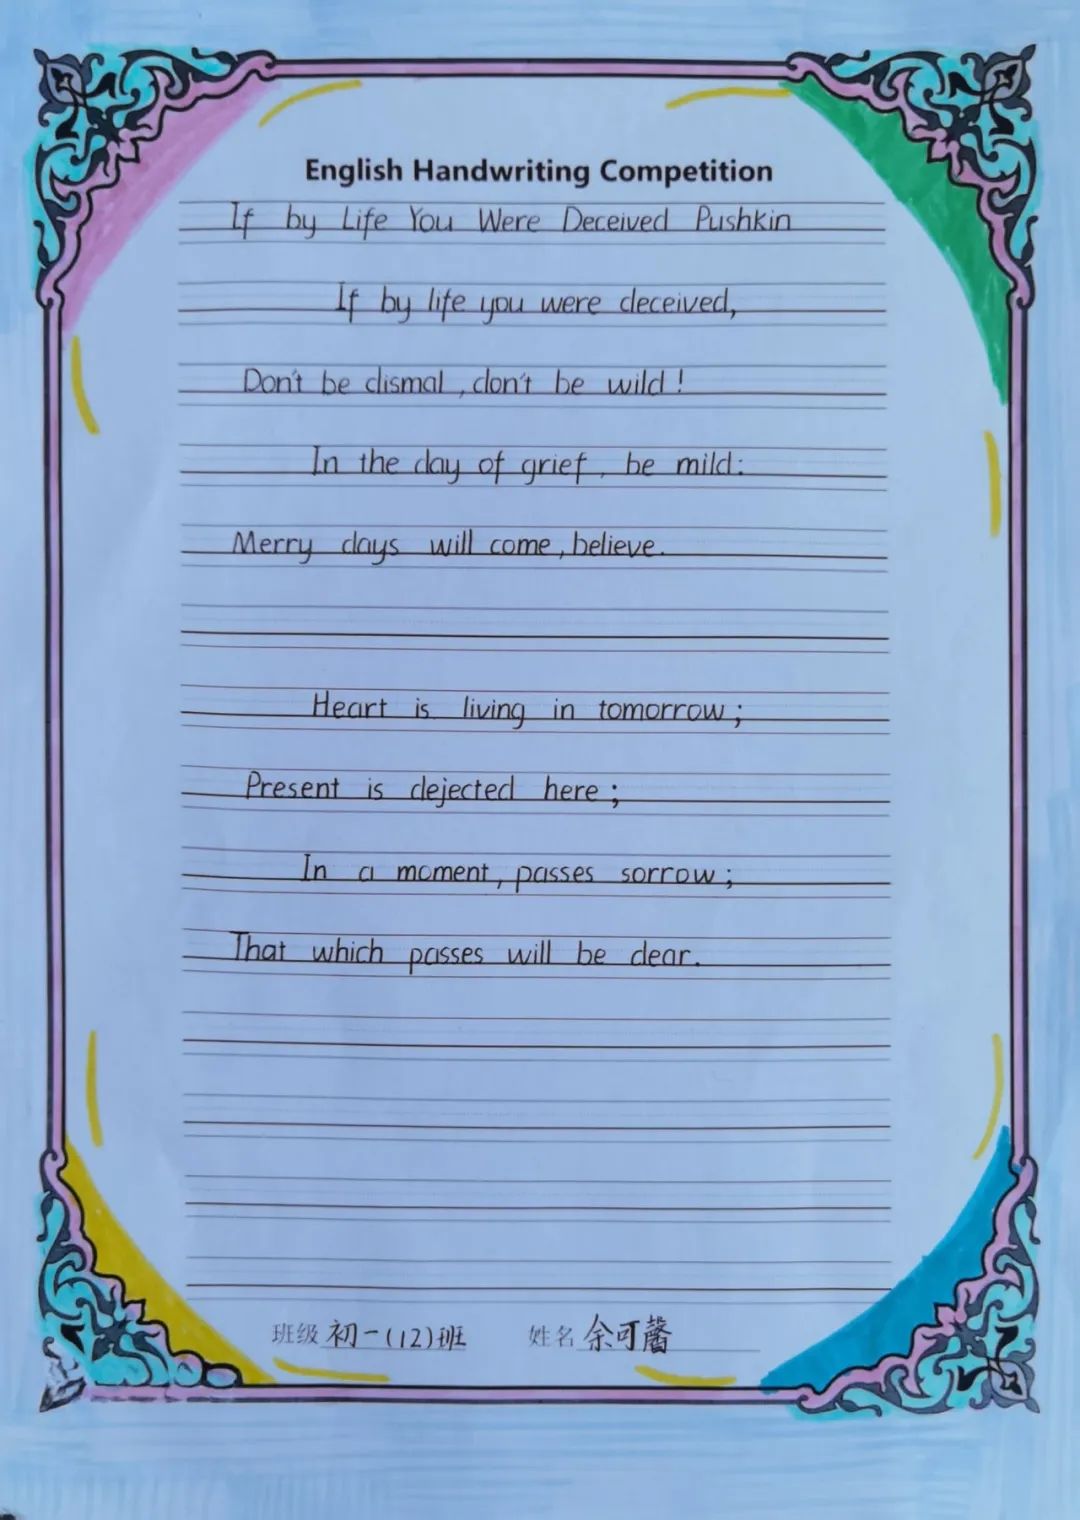 English Handwriting Competition
If by Life You Were Deceived Pushkin
If by life you were deceived,
Don't be dismal, don't be wild!
In the day of grief, be mild:
Merry days will come, believe.
Heart is living in tomorrow;
Present is dejected here;
In a moment, passes sorrow;
That which passes will be dear.
班级 初一(12)班 姓名 余可馨